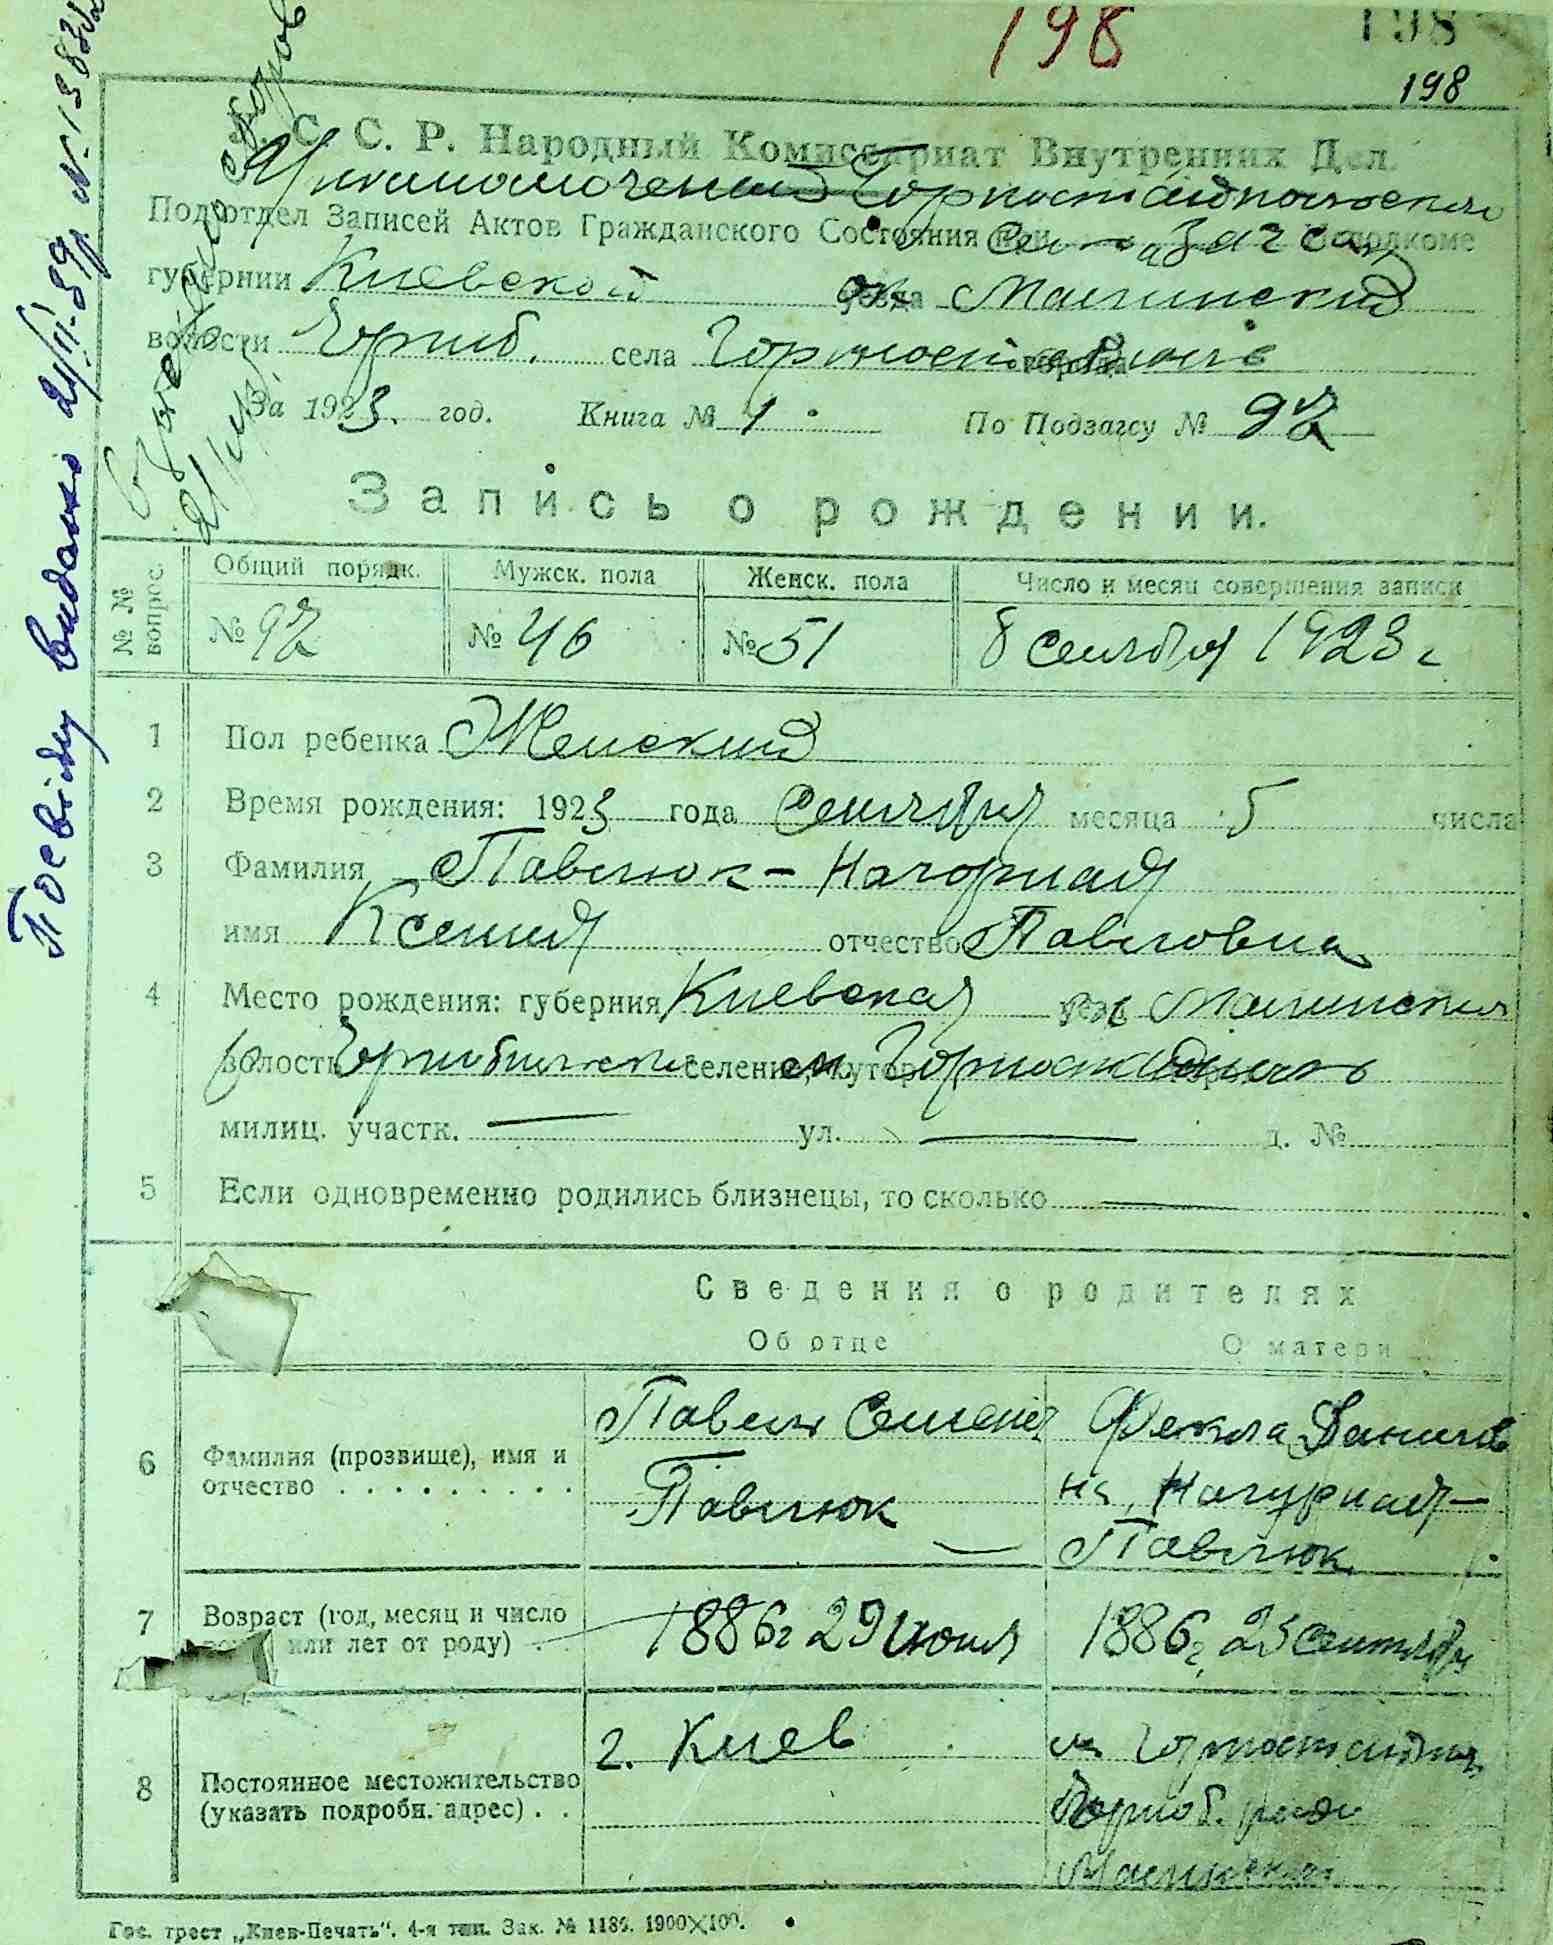 198
198
198
С. С. Р. Народный Комиссариат Внутренних Дел.
Подотдел Записей Актов Гражданского Состояния при исполкоме
загса
губернии Киевской уезда Малинский
волости Черноб. села Горностайполь
За 1923 год. Книга № 1 По Подзагсу № 97
Запись о рождении.
№ № вопрос.
Общий порядк. Мужск. пола Женск. пола Число и месяц совершения записи
№ 97 № 46 № 51 8 Сентября 1923 г
1 Пол ребенка Женский
2 Время рождения: 1923 года Сентября месяца 5 числа
3 Фамилия Павлюк - Нагорная
имя Ксения отчество Павловна
4 Место рождения: губерния Киевская уезд Малинский
волость селение, хутор Горностайполь
милиц. участк. — ул. — д. №
5 Если одновременно родились близнецы, то сколько —
Сведения о родителях
Об отце О матери
6 Фамилия (прозвище), имя и отчество . . . . . . . . . .
Павел Семенов
Павлюк
Фекла Данилов
на, Нагурная -
Павлюк
7 Возраст (год, месяц и число или лет от роду) . .
1886 г 29 июня
1886 г, 23 сентября
8 Постоянное местожительство (указать подробн. адрес) . .
г. Киев
м. Горностайпол
Черноб. район
Малинский
Гос. трест „Киев-Печать“. 4-я тип. Зак. № 1186. 1900×100.
Посвідку видано 21/II-39р. №